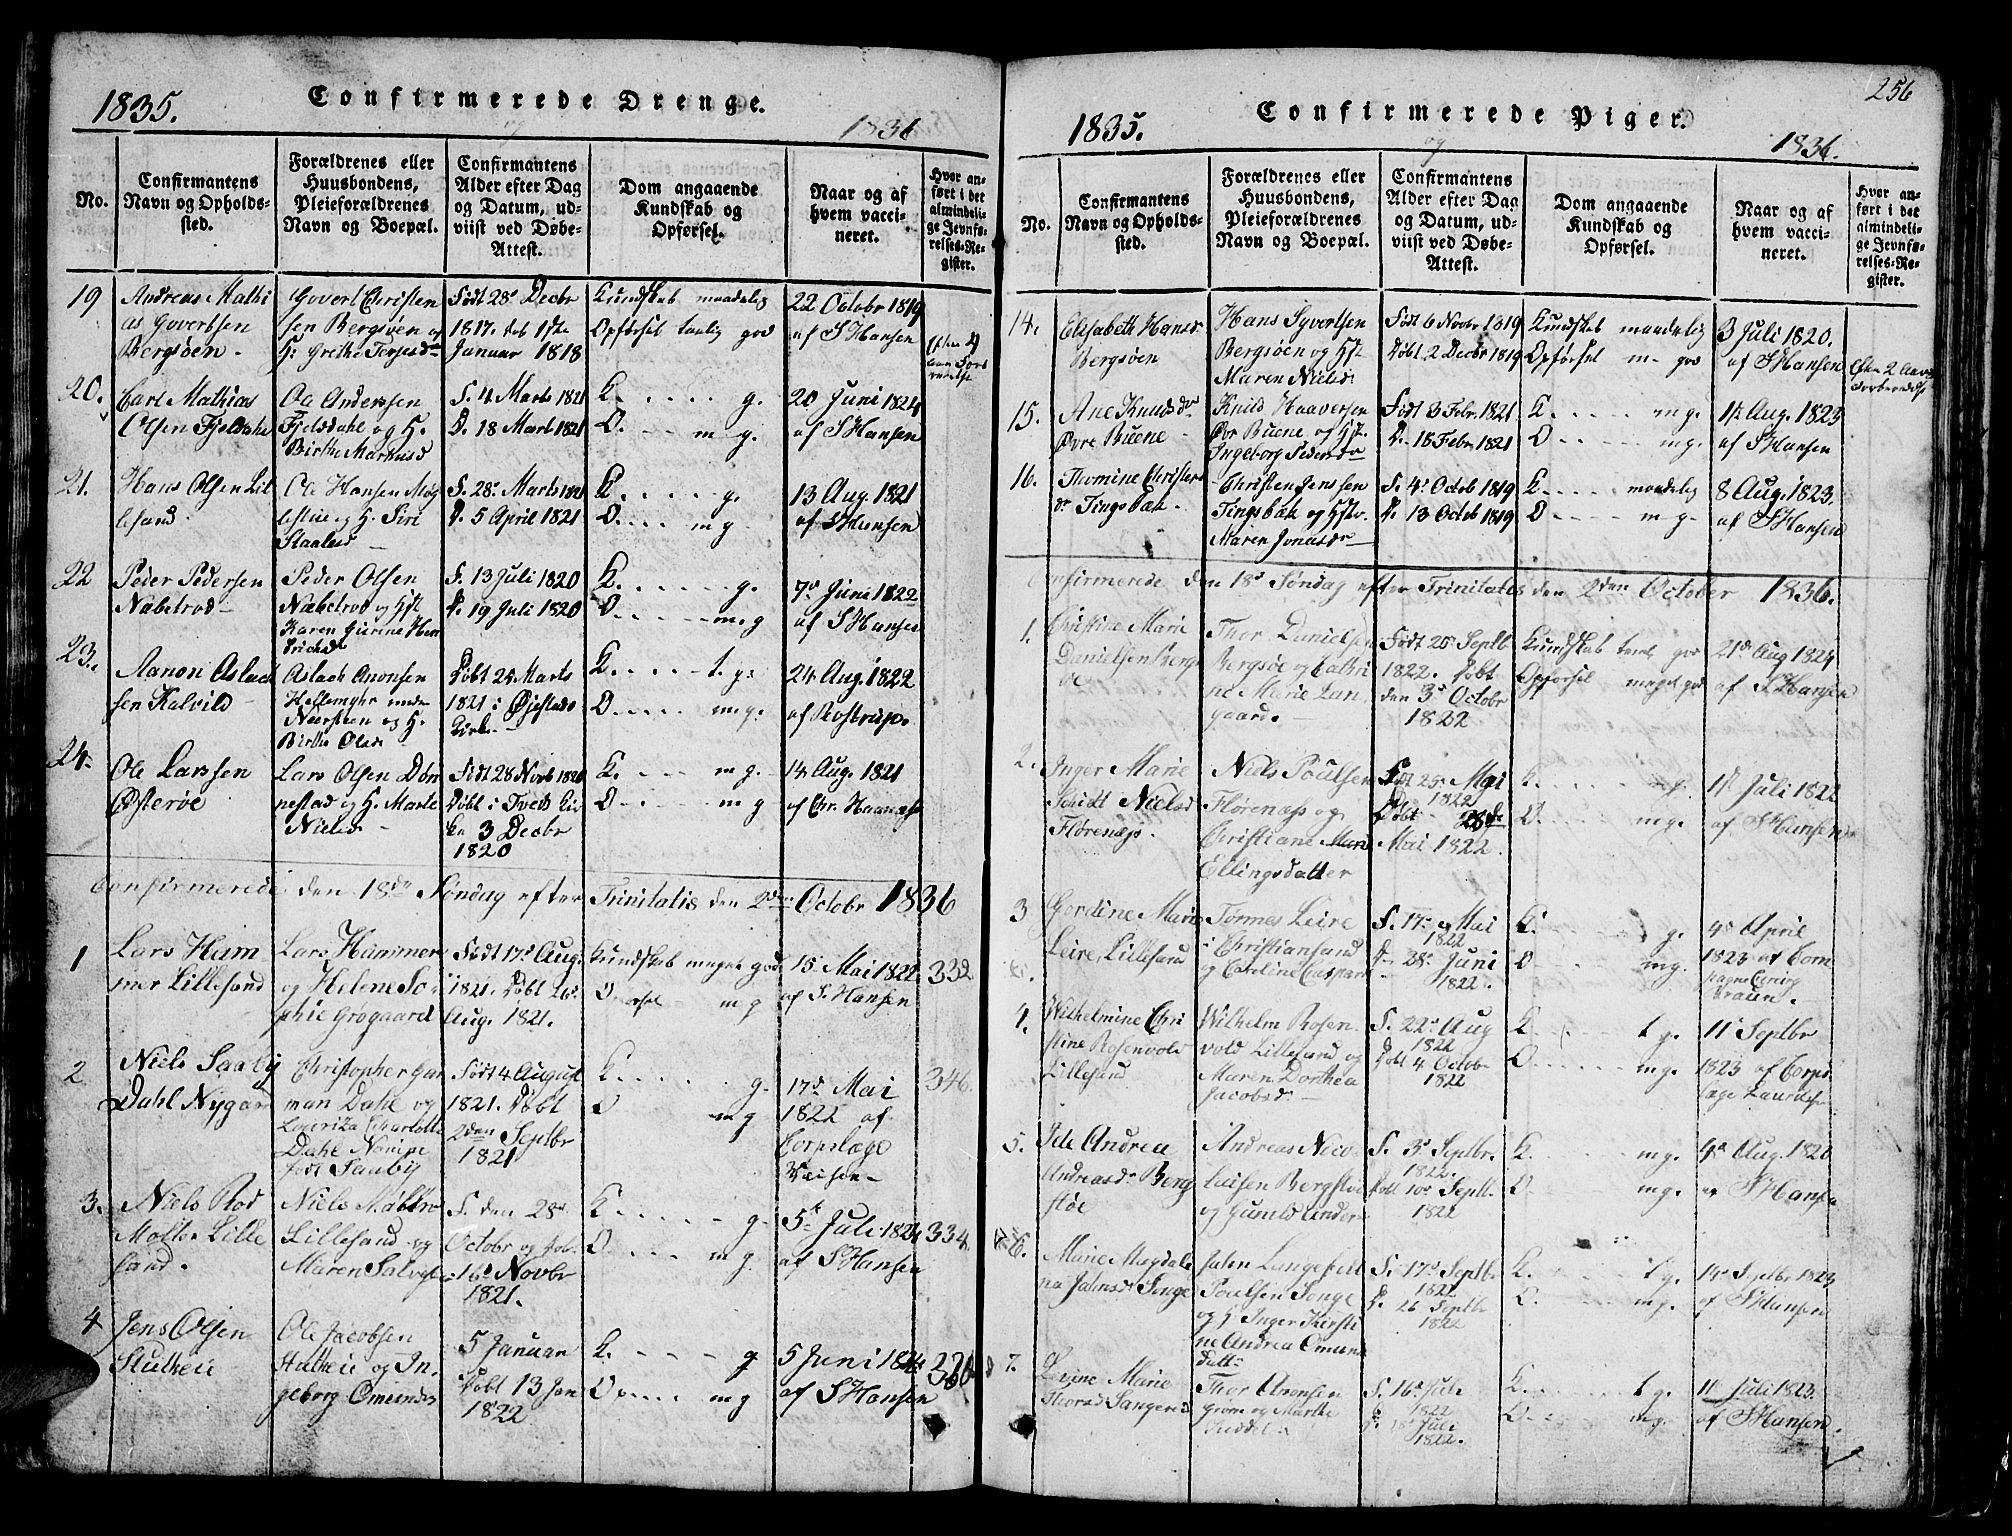 1835.
Confirmerede Drenge.
og
1836
No.
Confirmantens
Navn og Opholds-
sted.
Forældrenes eller
Huusbondens,
Pleieforældrenes
Navn og Boepæl.
Confirmantens
Alder efter Dag
og Datum, ud-
viist ved Døbe-
Attest.
Dom angaaende
Kundskab og
Opførsel.
Naar og af
hvem vacci-
neret.
Hvor an-
ført i det
almindeli-
ge Jevnfø-
relses-Re-
gister.
19
Andreas Mathi
as Govertsen
Bergsøen -
Govert Christen
sen Bergsøen og
H: Grethe Terjesdr
Født 28d Decbr
1817. døb 1ste
Januar 1818
Kundskab maadelig
Opførsel taalig god
22 Octobr 1819
af S Hansen
20.
Carl Mathias
Olsen Fjeldahl
Andersen
Fjeldahl og H.
Birthe Marcusd
S. 4 Marts 1821
D. 18 Marts 1821
K. . . . . . g.
O. - - - m g.
20 Juni 1824
af S Hansen
21.
Hans Olsen Lil
lesand.
Ole Hansen Møg
lestue og H. Siri
Staalesd -
F. 28d Marts 1821
D. 5 April 1821
K. . . . . . g.
O. . . . . m g.
13 Aug. 1821
af S Hansen
22
Peder Pedersen
Nabetrod -
Peder Olsen
Nabetrod og Hst
Karen Gurine Hen
richsd
F. 13 Juli 1820
D. 19 Juli 1820
K. . . . . . g.
O. - - - - m. g
7d Juni 1822
af S Hansen
23.
Aanon Aslach
sen Kalvild -
Aslach Anonsen
Neersteen og H.
Birthe Olsd -
Døbt 25 Marts
1821 i Øjestads
Kirke -
K. . . . . t. g.
O. . . . . m. g.
24 Aug. 1822
af Rostrup.
24.
Ole Larssen
Østerøe
Lars Olsen Døn
nestad og H. Marte
Nielsd -
Født 28 Novb 1820
Døbt i Tveds Kir
ke 3 Decbr
1820
K. - - - m g.
O. - - - m g
14 Aug. 1821
af Chr. Haanæs
Confirmerede den 18de Søndag efter Trinitatis den 2den Octobr 1836
1
Lars Ham
mer Lillesand
Lars Hammer
og Helene So-
phie Grogaard
Født 17d Aug.
1821. Døbt 26d
Aug. 1821.
Kundskab meget god
Opførsel - m g
15. Mai 1822
af S. Hansen
332
2
Niels Saaby
Dahl Nygard
Christopher Har
man Dahl og
Lovisa Charlotte
Dahl
født Saaby
Født 4 August
1821. Døbt
2den Septbr
1821
K. . . . . . g.
O m g
17d Mai
1822 af
Corpslæge
346.
3.
Niels Rod
Moltor Lille
sand.
Niels
Lillesand og
Maren Salves
F. den 28d
Octobr og døb.
16d Novbr
1821.
K. - - - - g.
O. . . . m g.
5t Juli 1824
af S Hansen
334.
4
Jens Olsen
Stutheii
Ole Jacobsen
Stutheii og In
geborg Omundsd
5 Januar
Døbt 13 Jan
1822
K. - - - - g
O. . . . . m g
5 Juni 1824
af S Hansen
1835.
Confirmerede Piger.
og
1836.
256
No.
Confirmantens
Navn og Opholds-
sted.
Forældrenes eller
Huusbondens,
Pleieforældrenes
Navn og Boepæl.
Confirmantens
Alder efter Dag
og Datum, ud-
viist ved Døbe-
Attest.
Dom angaaende
Kundskab og
Opførsel.
Naar og af
hvem vacci-
neret.
Hvor an-
ført i det
almindeli-
ge Jevnfø-
relses-Re-
gister.
14.
Elisabeth Hansd
Bergsøen
Hans Syvertsen
Bergsøen og Hst
Maren Nielsd
Født 6 Novbr 1819
Døbt 2 Decbr 1819
Kundskab maadelig
Opførsel m- god
3 Juli 1820.
af S Hansen
15.
Ane Knudsdr
Øvre Buene -
Knud Haaversen
Øvr Buene og Hst.
Ingeborg Pedersdr
Født 3 Febr. 1821.
D. 18 Febr. 1821
K - - - - m g.
O - - - - m g.
17 Aug. 1823
af S Hansen
16.
Thomine Christens
dr Tingsbæk.
Christen Jenssen
Tingsbæk og Hstr
Maren Jonasdr
F. 4d Octob 1819
D. 13 Octob 1819
K - - - - maadelig
O - - - - m g -
8 Aug. 1823.
af S Hansen
Confirmerede den 18d Søndag efter Trinitatis den 2den October 1836.
1.
Christine Marie
Danielsen Bergs
øe
Thor Danielsen
Bergsøe og Cathri
ne Marie Lan
gaard. -
Født 25d Septb
1822. døbt
den 3d Octobr
1822
Kundskab god
Opførsel meget god
21de Aug 1824
af S Hansen
2.
Inger Marie
Nielsd
Florenæs.
Niels Poulsen
Florenæs og
Christiane Marie
Ellingsdatter
Født 25d Mai
1822
Døbt 28de
Mai 1822.
K. - - - mg.
O. - - - mg.
17 Juli 1822
af S Hansen
3
Gordine Marie
Leire, Lillesand
Tormes Leire
i Christiansand
og Caroline Caspar
F. 17d Mai
1822
D. 28d Juni
1822.
K. - - - g.
O - - - mg.
4d April
1823 af Com
pagnie Chirurg
Braun. -
4.
Wilhelmine Chri
stine Rosenvold
Lillesand
Wilhelm Rosen
vold Lillesand og
Maren Dorthea
Jacobsd -
F. 22d Aug
1822
Døbt 4 Octob
1822
K - - - t g.
O. - - - m g.
11d Septbr
1823 af Corps
læge Lauritsen
5.
Ide Andrea
Andreasd Berg
støe
Andreas Nico
laisen Bergstøe
og Gunild Ander
F. 3d Septbr.
1822.
Døbt 10d Septb.
1822
K. - - - mg.
O. - - - mg.
4d Aug. 1826
af S Hansen
6.
Marie Magdale
na Jahnsd Songe
Jahn Langefeldt
Poulsen Songe
og H Inger Kirsti
ne Andrea Omund
datt
F. 17d Septb.
D. 26 Septb
1822
K. - - - t g.
O. - - - mg.
14 Septbr 1823
af S Hansen
7.
Marie
Thorsd Sangereid
Thor Aronsen
og Marthe
F. 16d Juli
1822
D. Juli
1822.
K. - - - t g.
O - - - mg.
11 Juli 1823.
af S Hansen.